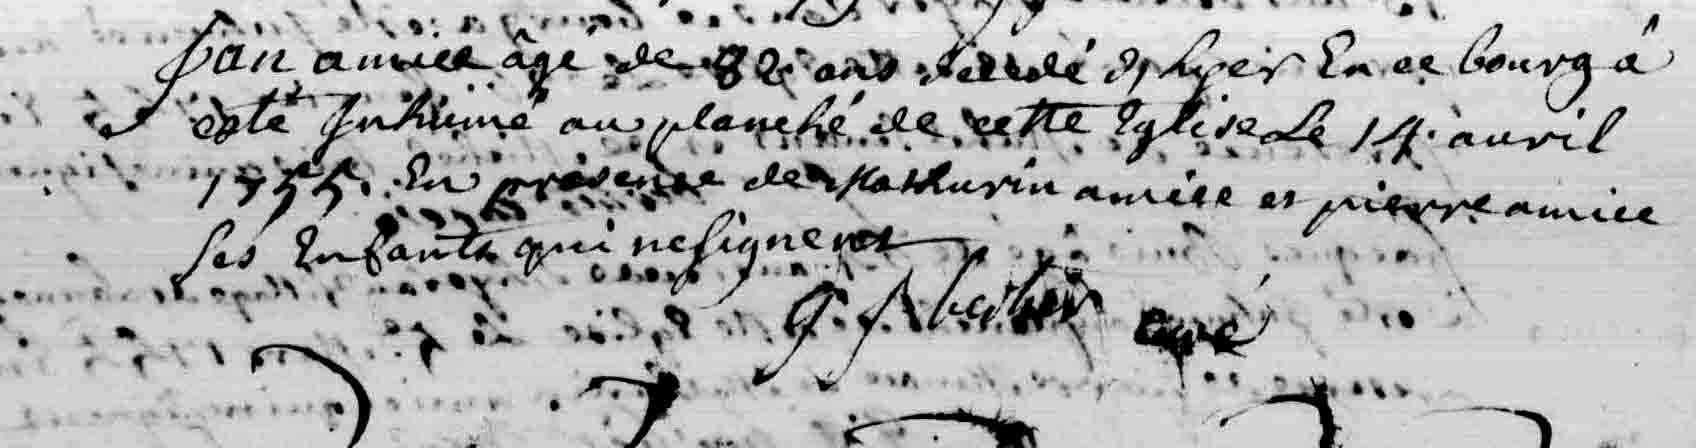 Jan amice âgé de 82 ans décédé d'hyer En ce bourg á
esté Inhumé au planché de cette Eglise Le 14. auril
1755. En présence de Mathurin amice et pierre amice
Ses Enfants qui ne signent
curé